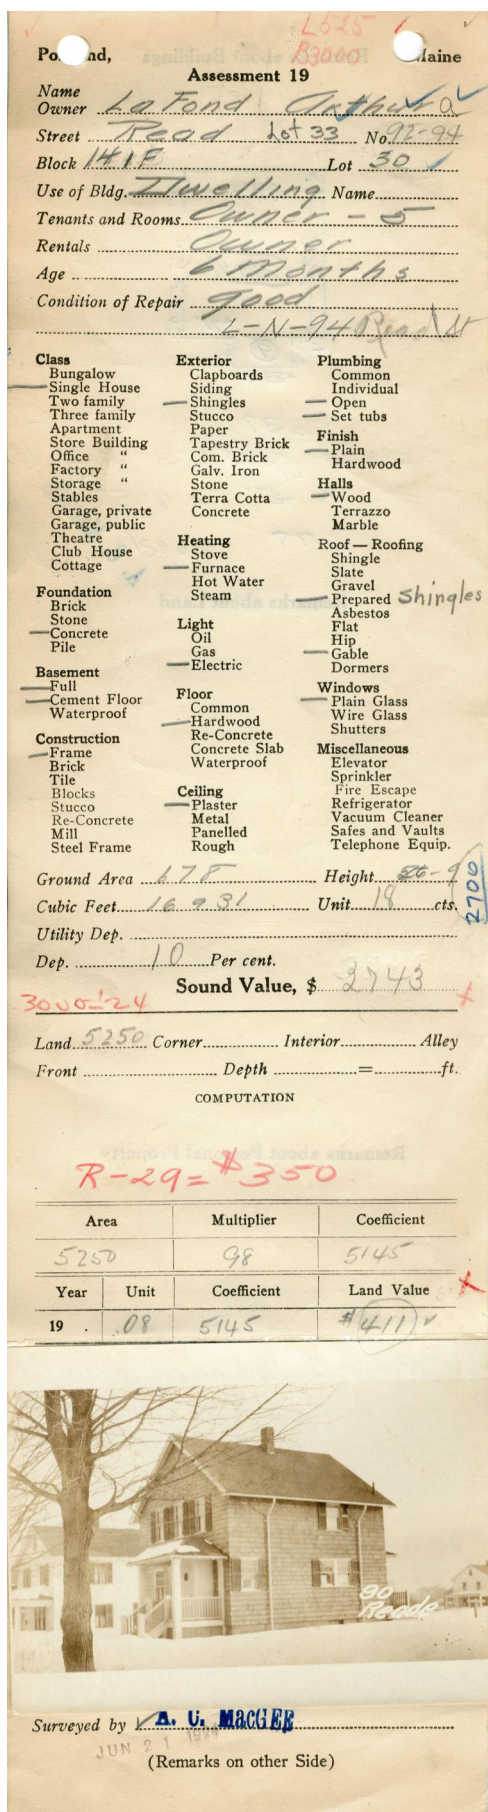 L525
B3000
Portland, Maine
Assessment 19
Name
Owner La Fond Arthur a
Street Read Lot 33 No. 92-94
Block 141F Lot 30
Use of Bldg. Dwelling Name
Tenants and Rooms Owner - 5
Rentals Owner
Age 6 Months
Condition of Repair good
L-N-94 Read St
Class
Bungalow
Single House
Two family
Three family
Apartment
Store Building
Office "
Factory "
Storage "
Stables
Garage, private
Garage, public
Theatre
Club House
Cottage
Foundation
Brick
Stone
Concrete
Pile
Basement
Full
Cement Floor
Waterproof
Construction
Frame
Brick
Tile
Blocks
Stucco
Re-Concrete
Mill
Steel Frame
Exterior
Clapboards
Siding
Shingles
Stucco
Paper
Tapestry Brick
Com. Brick
Galv. Iron
Stone
Terra Cotta
Concrete
Heating
Stove
Furnace
Hot Water
Steam
Light
Oil
Gas
Electric
Floor
Common
Hardwood
Re-Concrete
Concrete Slab
Waterproof
Ceiling
Plaster
Metal
Panelled
Rough
Plumbing
Common
Individual
Open
Set tubs
Finish
Plain
Hardwood
Halls
Wood
Terrazzo
Marble
Roof — Roofing
Shingle
Slate
Gravel
Prepared Shingles
Asbestos
Flat
Hip
Gable
Dormers
Windows
Plain Glass
Wire Glass
Shutters
Miscellaneous
Elevator
Sprinkler
Fire Escape
Refrigerator
Vacuum Cleaner
Safes and Vaults
Telephone Equip.
Ground Area 678 Height
Cubic Feet 16931 Unit 18 cts.
2700
Utility Dep.
Dep. 10 Per cent.
Sound Value, $ 2743
3000-'24
Land 5250 Corner Interior Alley
Front Depth = ft.
COMPUTATION
R-29=$350
Area Multiplier Coefficient
5250 98 5145
Year Unit Coefficient Land Value
19 . .08 5145 $411
90
Reade
Surveyed by A. C. MacGEE
JUN 21 1924
(Remarks on other Side)